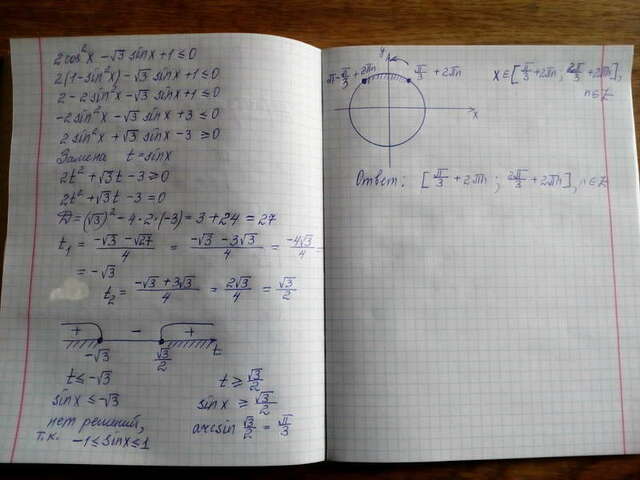 2cos²x - √3 sinx + 1 ≤ 0
2(1-sin²x) - √3 sinx + 1 ≤ 0
2 - 2sin²x - √3 sinx + 1 ≤ 0
-2sin²x - √3 sinx + 3 ≤ 0
2sin²x + √3 sinx - 3 ≥ 0
Замена t = sinx
2t² + √3t - 3 ≥ 0
2t² + √3t - 3 = 0
D = (√3)² - 4·2·(-3) = 3 + 24 = 27
t₁ = (-√3 - √27)/4 = (-√3 - 3√3)/4 = (-4√3)/4 =
= -√3
t₂ = (-√3 + 3√3)/4 = 2√3/4 = √3/2
+ - +
-√3 √3/2 t
t ≤ -√3 t ≥ √3/2
sinx ≤ -√3 sinx ≥ √3/2
нет решений, arcsin √3/2 = π/3
т.к. -1 ≤ sinx ≤ 1
y
π - π/3 + 2πn π/3 + 2πn
x
x ∈ [π/3 + 2πn; 2π/3 + 2πn],
n ∈ Z
Ответ: [π/3 + 2πn; 2π/3 + 2πn], n ∈ Z